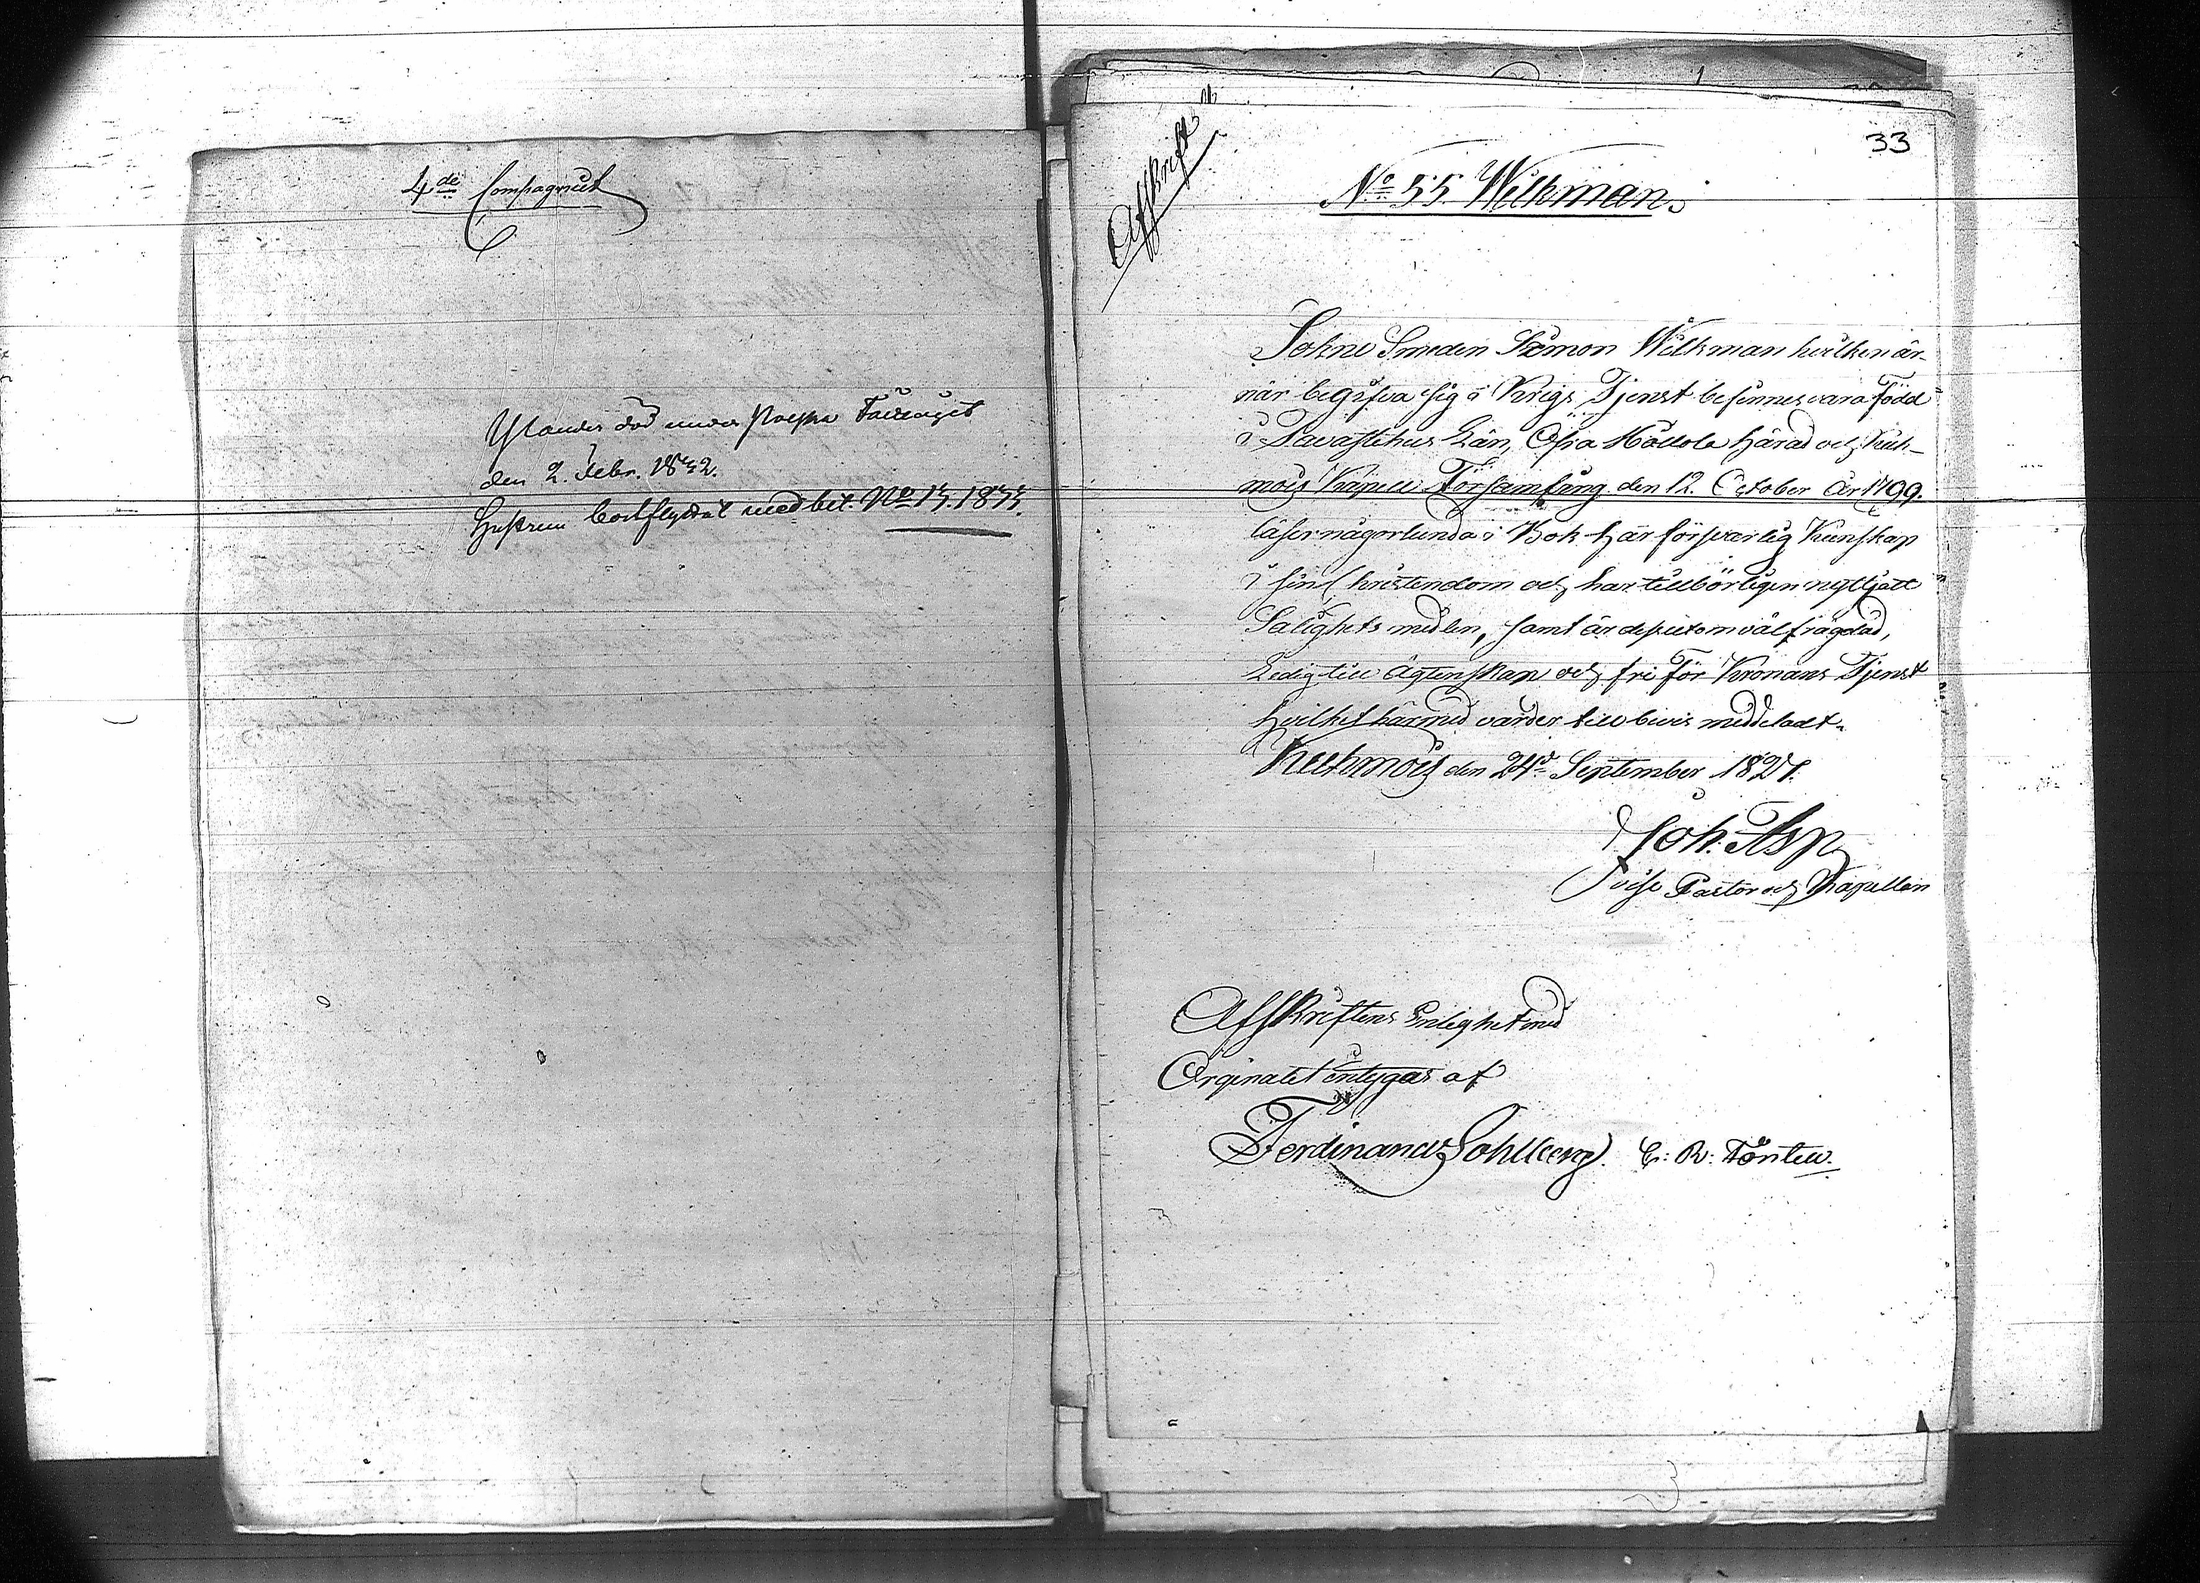 4de Compagniet
Ylander död under Polska Fälttåget
den 2. Febr. 1832.
Hustrun bortflyttat med bet. No 15. 1833.
33
Affskrift
No 55. Wilkman.
Sokne Smeden Simon Wilkman hvilken är-
när begifva sig i Krigs Tjenst befinnes vara Född
i Tavastehus Län, Öfra Hollola härad och Kuh-
mois Kapell Församling den 12. October År 1799.
läser någorlunda i Bok har försvarlig Kunskap
i sin Christendom och har tillbörligen nyttjatt
Salighets medlen, samt är dessutom välfrägdad,
Ledig till Ägtenskap och fri för Kronans Tjenst
hvilket härmed varder till bevis meddeladt.
Kuhmois den 24de September 1827.
Joh. Asp
vise Pastor och Kapellan
Afskriftens Enlighet med
Orginalet intygar af
Ferdinand C: R: